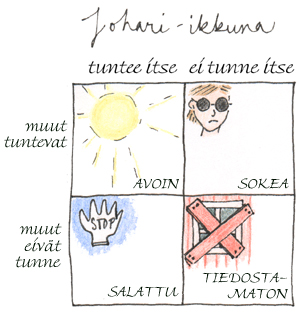 Johari-ikkuna
tuntee itse ei tunne itse
muut
tuntevat
AVOIN SOKEA
muut
eivät
tunne
STOP
SALATTU
TIEDOSTA-
MATON